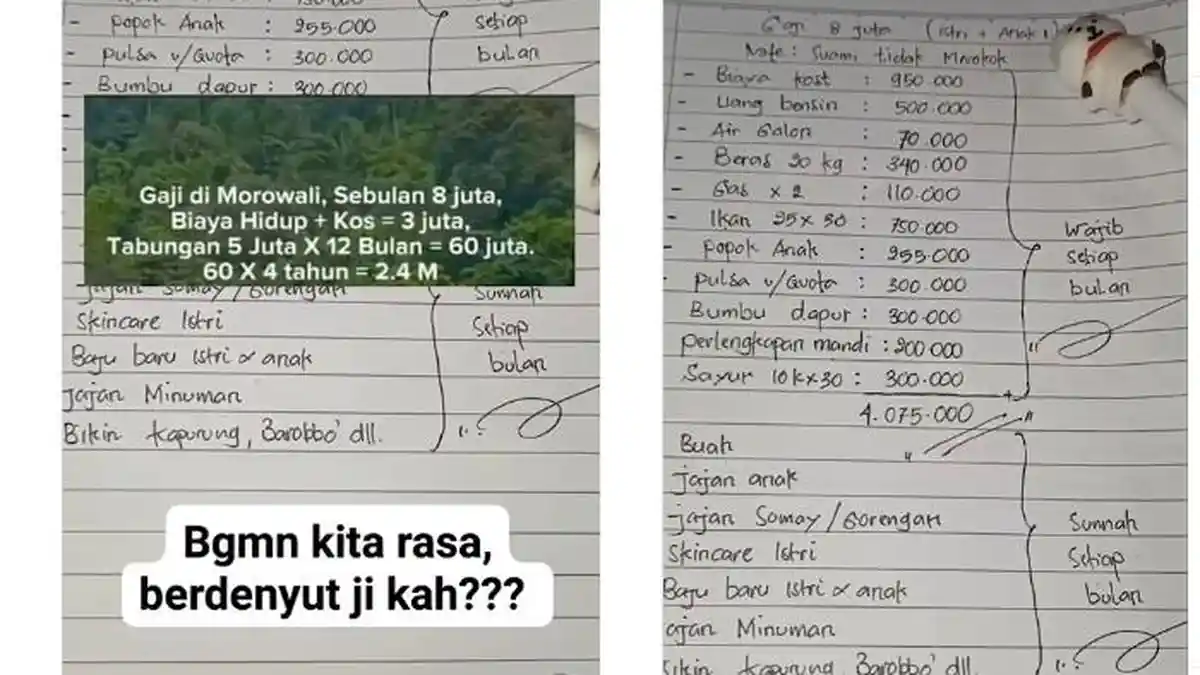 - popok Anak : 255.000
- pulsa u/Quota : 300.000
- Bumbu dapur : 300.000
setiap
bulan
Gaji di Morowali, Sebulan 8 juta,
Biaya Hidup + Kos = 3 juta,
Tabungan 5 Juta X 12 Bulan = 60 juta.
60 X 4 tahun = 2.4 M
Jajan Somay / Gorengan
Skincare Istri
Baju baru istri & anak
Jajan Minuman
Bikin kapurung, Barobbo' dll.
Sunnah
Setiap
bulan
Bgmn kita rasa,
berdenyut ji kah???
Gaji 8 juta (istri + Anak 1)
Note: Suami tidak Merokok
- Biaya kost : 950.000
- Uang bensin : 500.000
- Air Galon : 70.000
- Beras 20 kg : 340.000
- Gas x 2 : 110.000
- Ikan 25 x 30 : 750.000
- popok Anak : 255.000
- pulsa u/Quota : 300.000
Bumbu dapur : 300.000
perlengkapan mandi : 200.000
Sayur 10k x 30 : 300.000
4.075.000
Wajib
setiap
bulan
Buah
jajan anak
jajan Somay / Gorengan
Skincare Istri
Baju baru istri & anak
ajan Minuman
Bikin kapurung, Barobbo' dll
Sunnah
Setiap
bulan